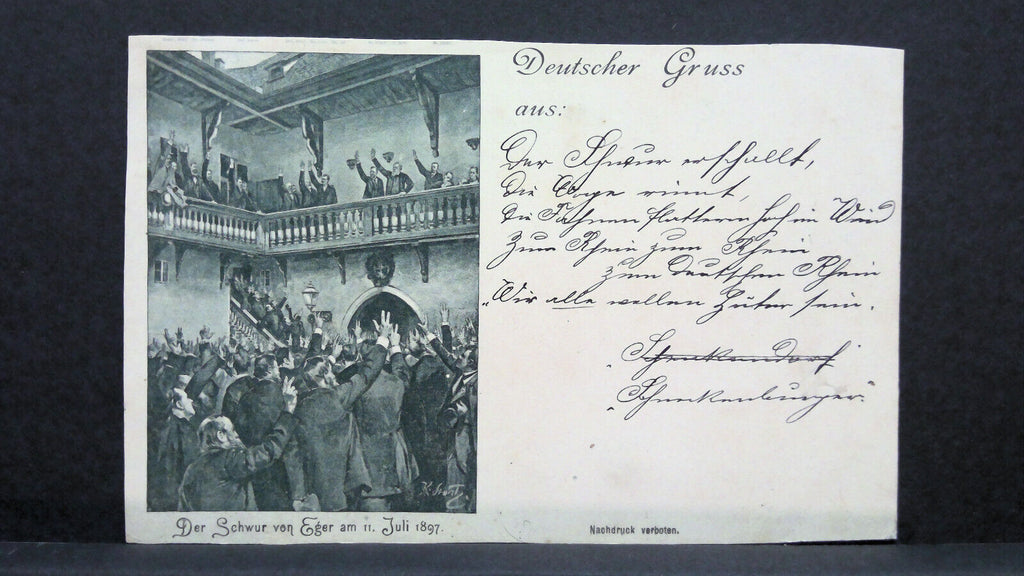 Deutscher Gruss
aus:
Der Schwur erschallt,
die Woge rinnt,
die Fahnen flattern hoch im Wind
Zum Rhein zum Rhein
zum deutschen Rhein
„Wir alle wollen Hüter sein.
Schneckendorf
„Schneckenburger."
Der Schwur von Eger am 11. Juli 1897.
Nachdruck verboten.